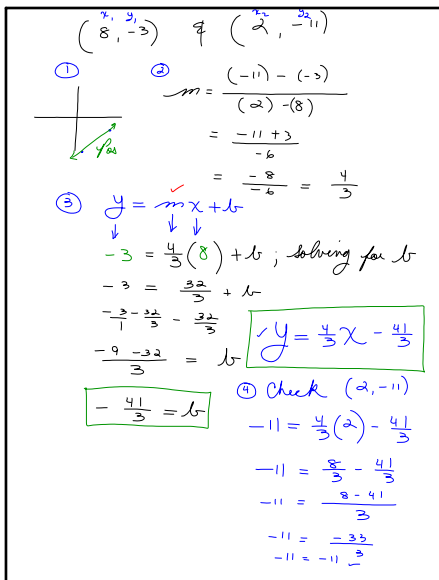 x₁ y₁ x₂ y₂
(8, -3) & (2, -11)
① Pos
② m = ((-11) - (-3)) / ((2) - (8))
= (-11 + 3) / -6
= -8/-6 = 4/3
③ y = mx + b ✓
-3 = 4/3 (8) + b ; solving for b
-3 = 32/3 + b
-3/1 - 32/3 - 32/3
(-9 - 32)/3 = b
- 41/3 = b
✓ y = 4/3 x - 41/3
④ Check (2, -11)
-11 = 4/3 (2) - 41/3
-11 = 8/3 - 41/3
-11 = (8 - 41)/3
-11 = -33/3
-11 = -11 ✓